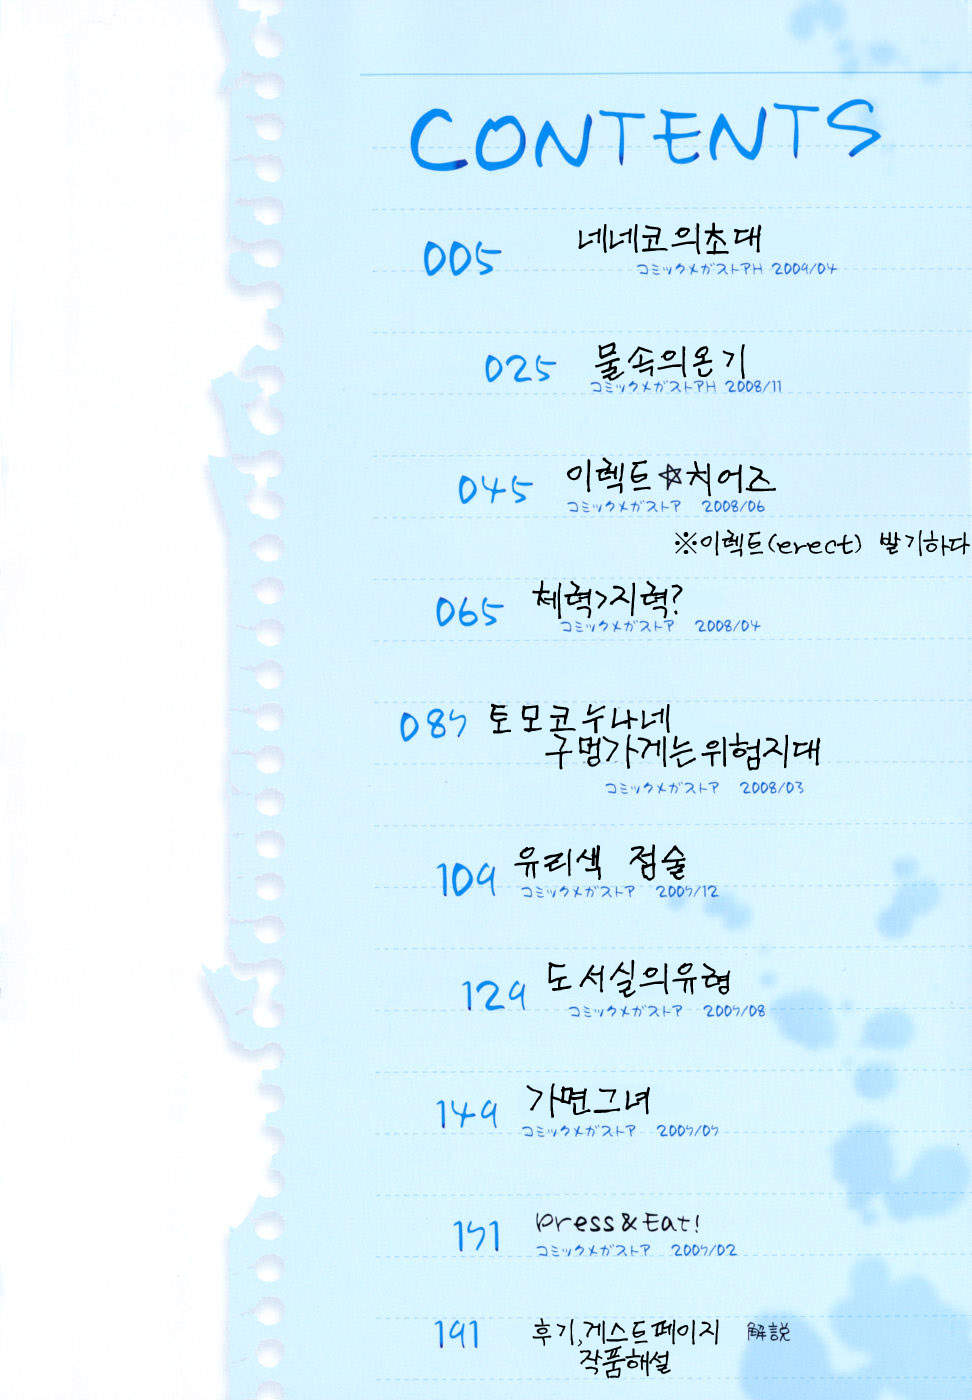 CONTENTS
005 네네코의초대
コミックメガストアH 2009/04
025 물속의온기
コミックメガストアH 2008/11
045 이렉트☆치어즈
コミックメガストア 2008/06
※이렉트(erect) 발기하다
065 체력>지력?
コミックメガストア 2008/04
087 토모코누나네
구멍가게는위험지대
コミックメガストア 2008/03
109 유리색 점술
コミックメガストア 2007/12
129 도서실의유령
コミックメガストア 2007/08
149 가면그녀
コミックメガストア 2007/07
171 press&Eat!
コミックメガストア 2007/02
191 후기,게스트페이지 解説
작품해설